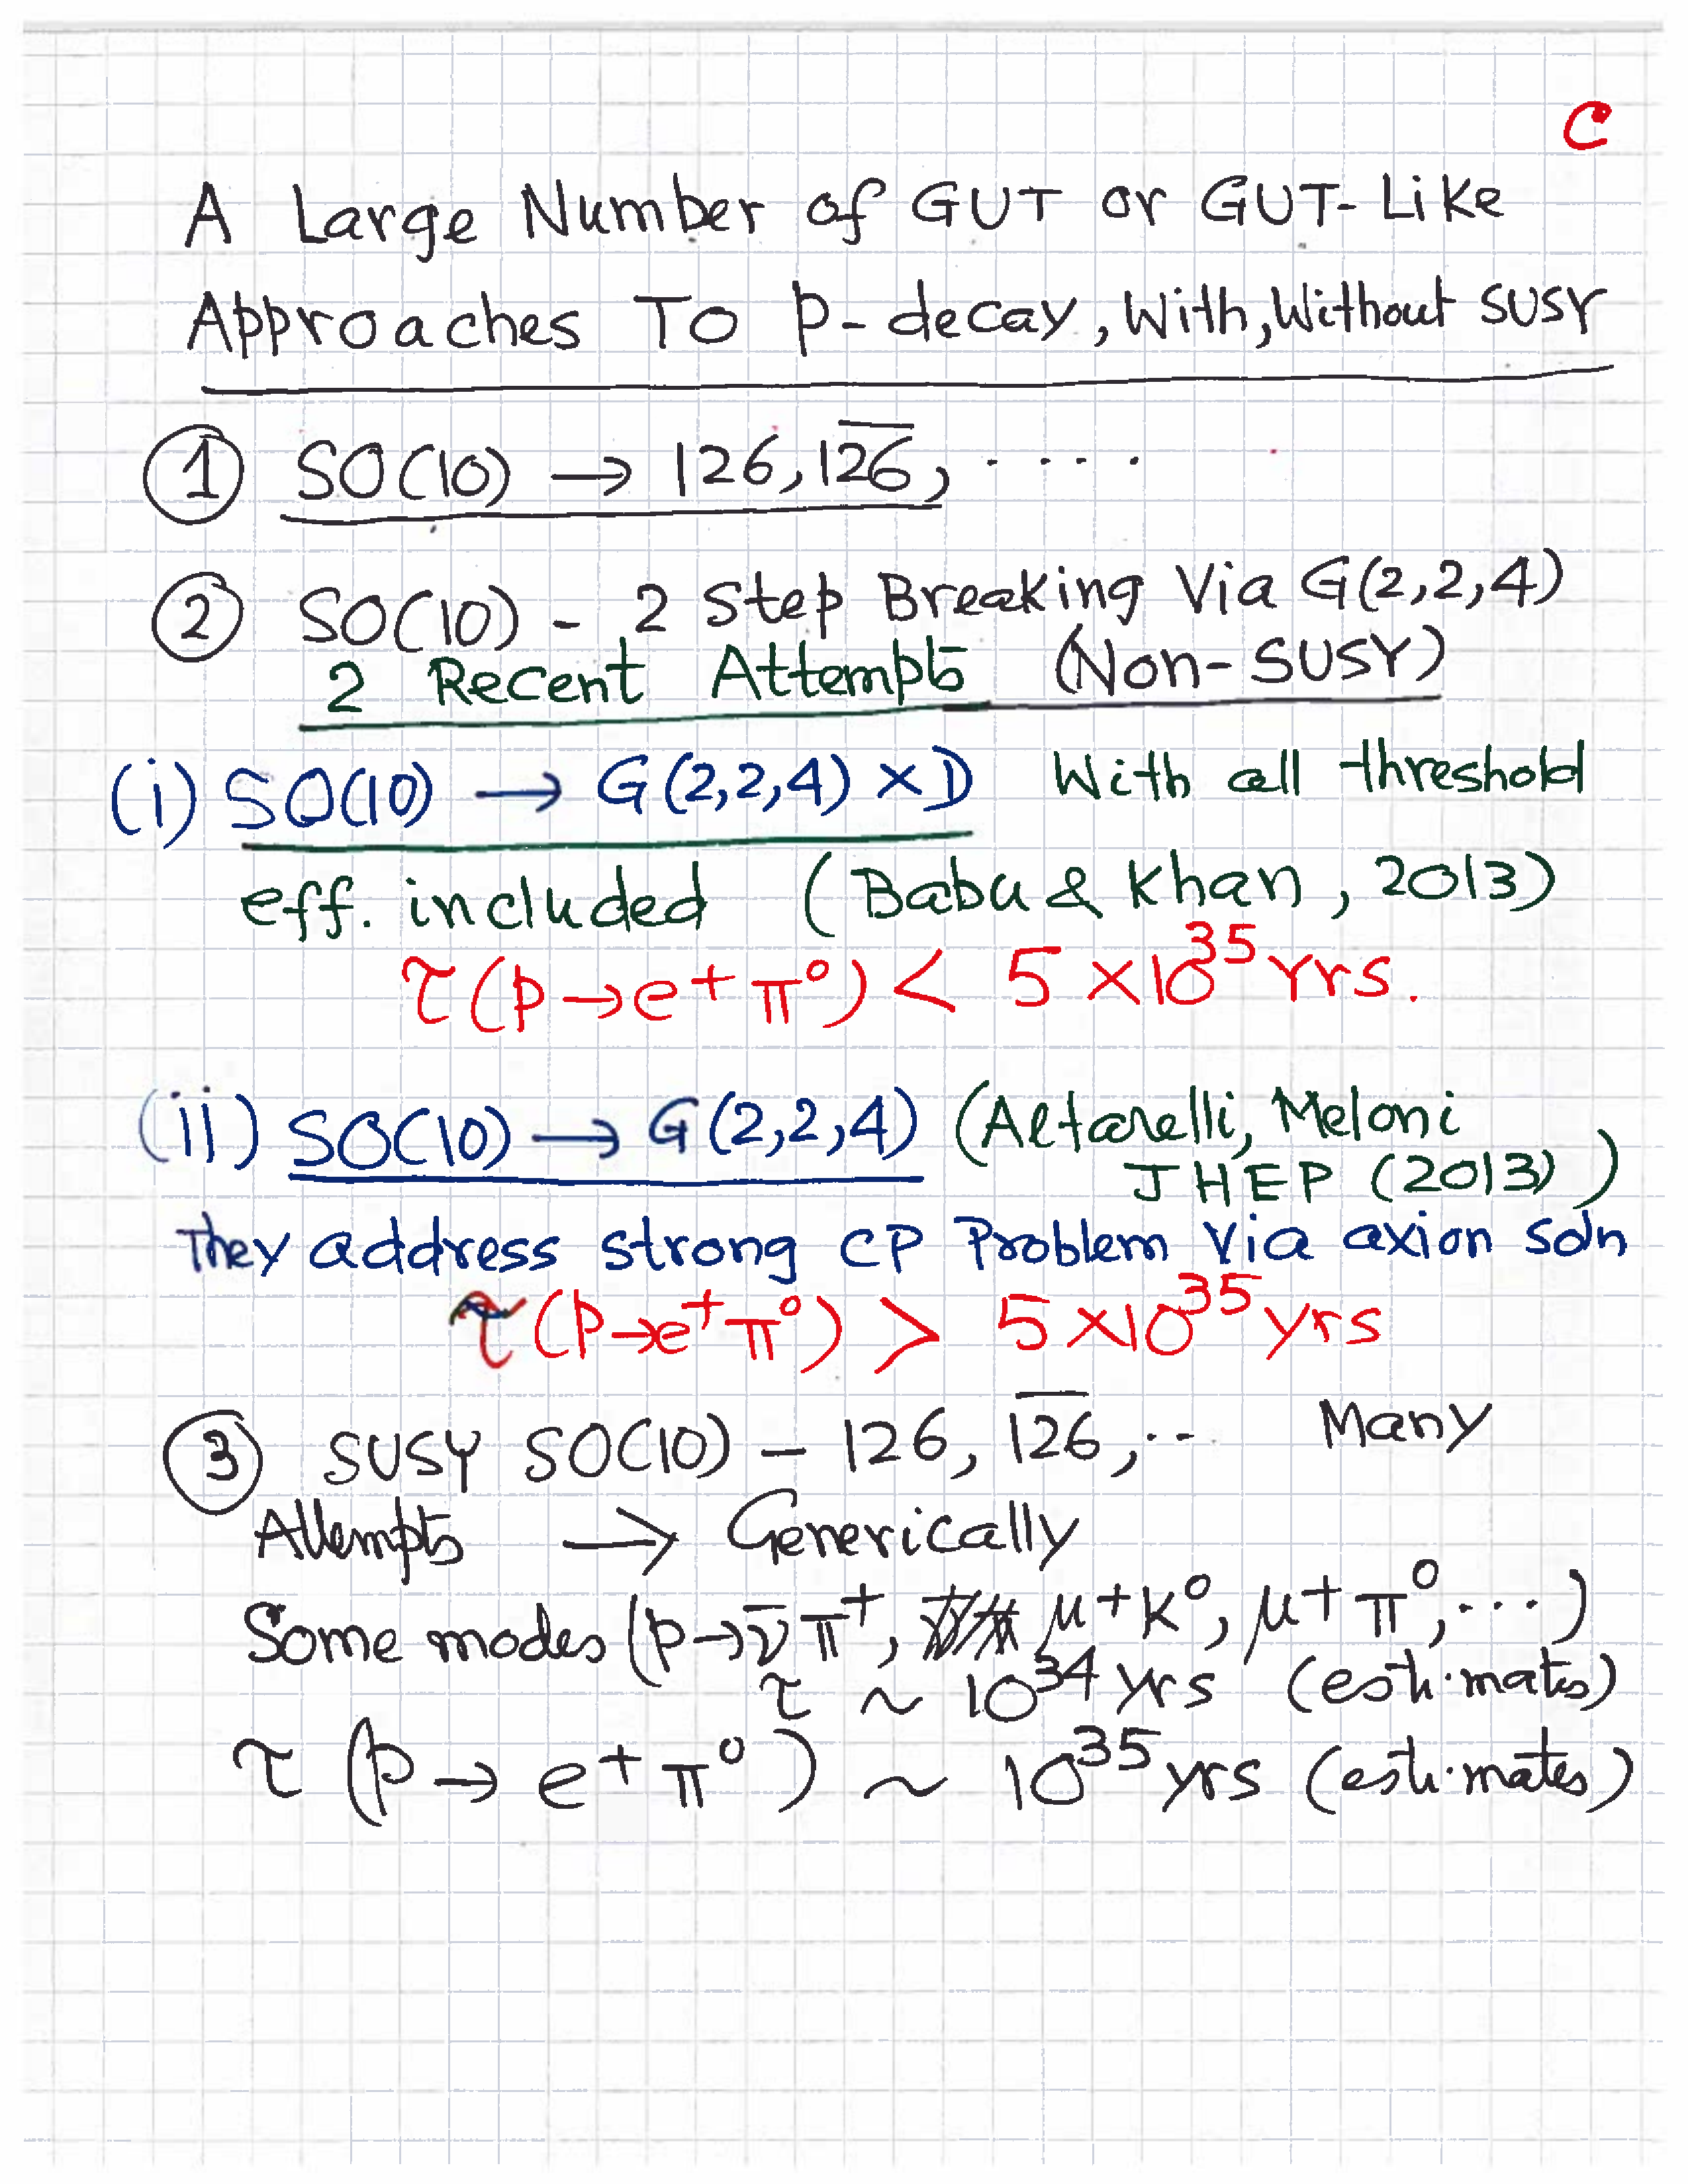 C
A Large Number of GUT or GUT-Like
Approaches To p-decay, With, Without SUSY
① SO(10) → 126, 1̅2̅6̅, ....
② SO(10) - 2 Step Breaking Via G(2,2,4)
2 Recent Attempts (Non-SUSY)
(i) SO(10) → G(2,2,4) × D With all threshold
eff. included (Babu & Khan, 2013)
τ(p→e⁺π⁰) < 5 ×10³⁵ Yrs.
(ii) SO(10) → G(2,2,4) (Altarelli, Meloni
JHEP (2013))
They address strong CP Problem Via axion soln
τ(p→e⁺π⁰) > 5 ×10³⁵ yrs
③ SUSY SO(10) – 126, 1̅2̅6̅, .. Many
Attempts → Generically
Some modes (p→ν̅π⁺, μ⁺K⁰, μ⁺π⁰, ...)
τ ~ 10³⁴ yrs (estimates)
τ (p → e⁺π⁰) ~ 10³⁵ yrs (estimates)